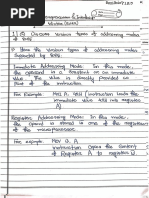 Microprocessor & Interfacing
1.) Q) Discuss various types of addressing modes of 8085.
→ Here the various types of addressing modes supported by 8085.
Immediate Addressing Mode: In this mode, the operand is a constant or an immediate value. The value is directly provided as part of the instruction.
For Example: MVI A,
instruction loads the immediate value into register A)
Register Addressing Mode: In this mode, the operand is stored in one of the registers of the microprocessor.
For example: MOV B, A
instruction copies the content of Register A to register B.